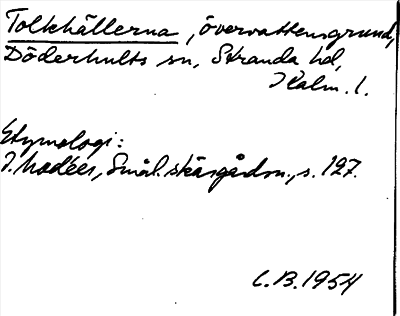 Tolkhällerna, övervattensgrund,
Döderhults sn, Stranda hd,
Kalm. l.
Etymologi:
I. Modéer, Smål. skärgårdsn., s. 127.
C.B. 1954